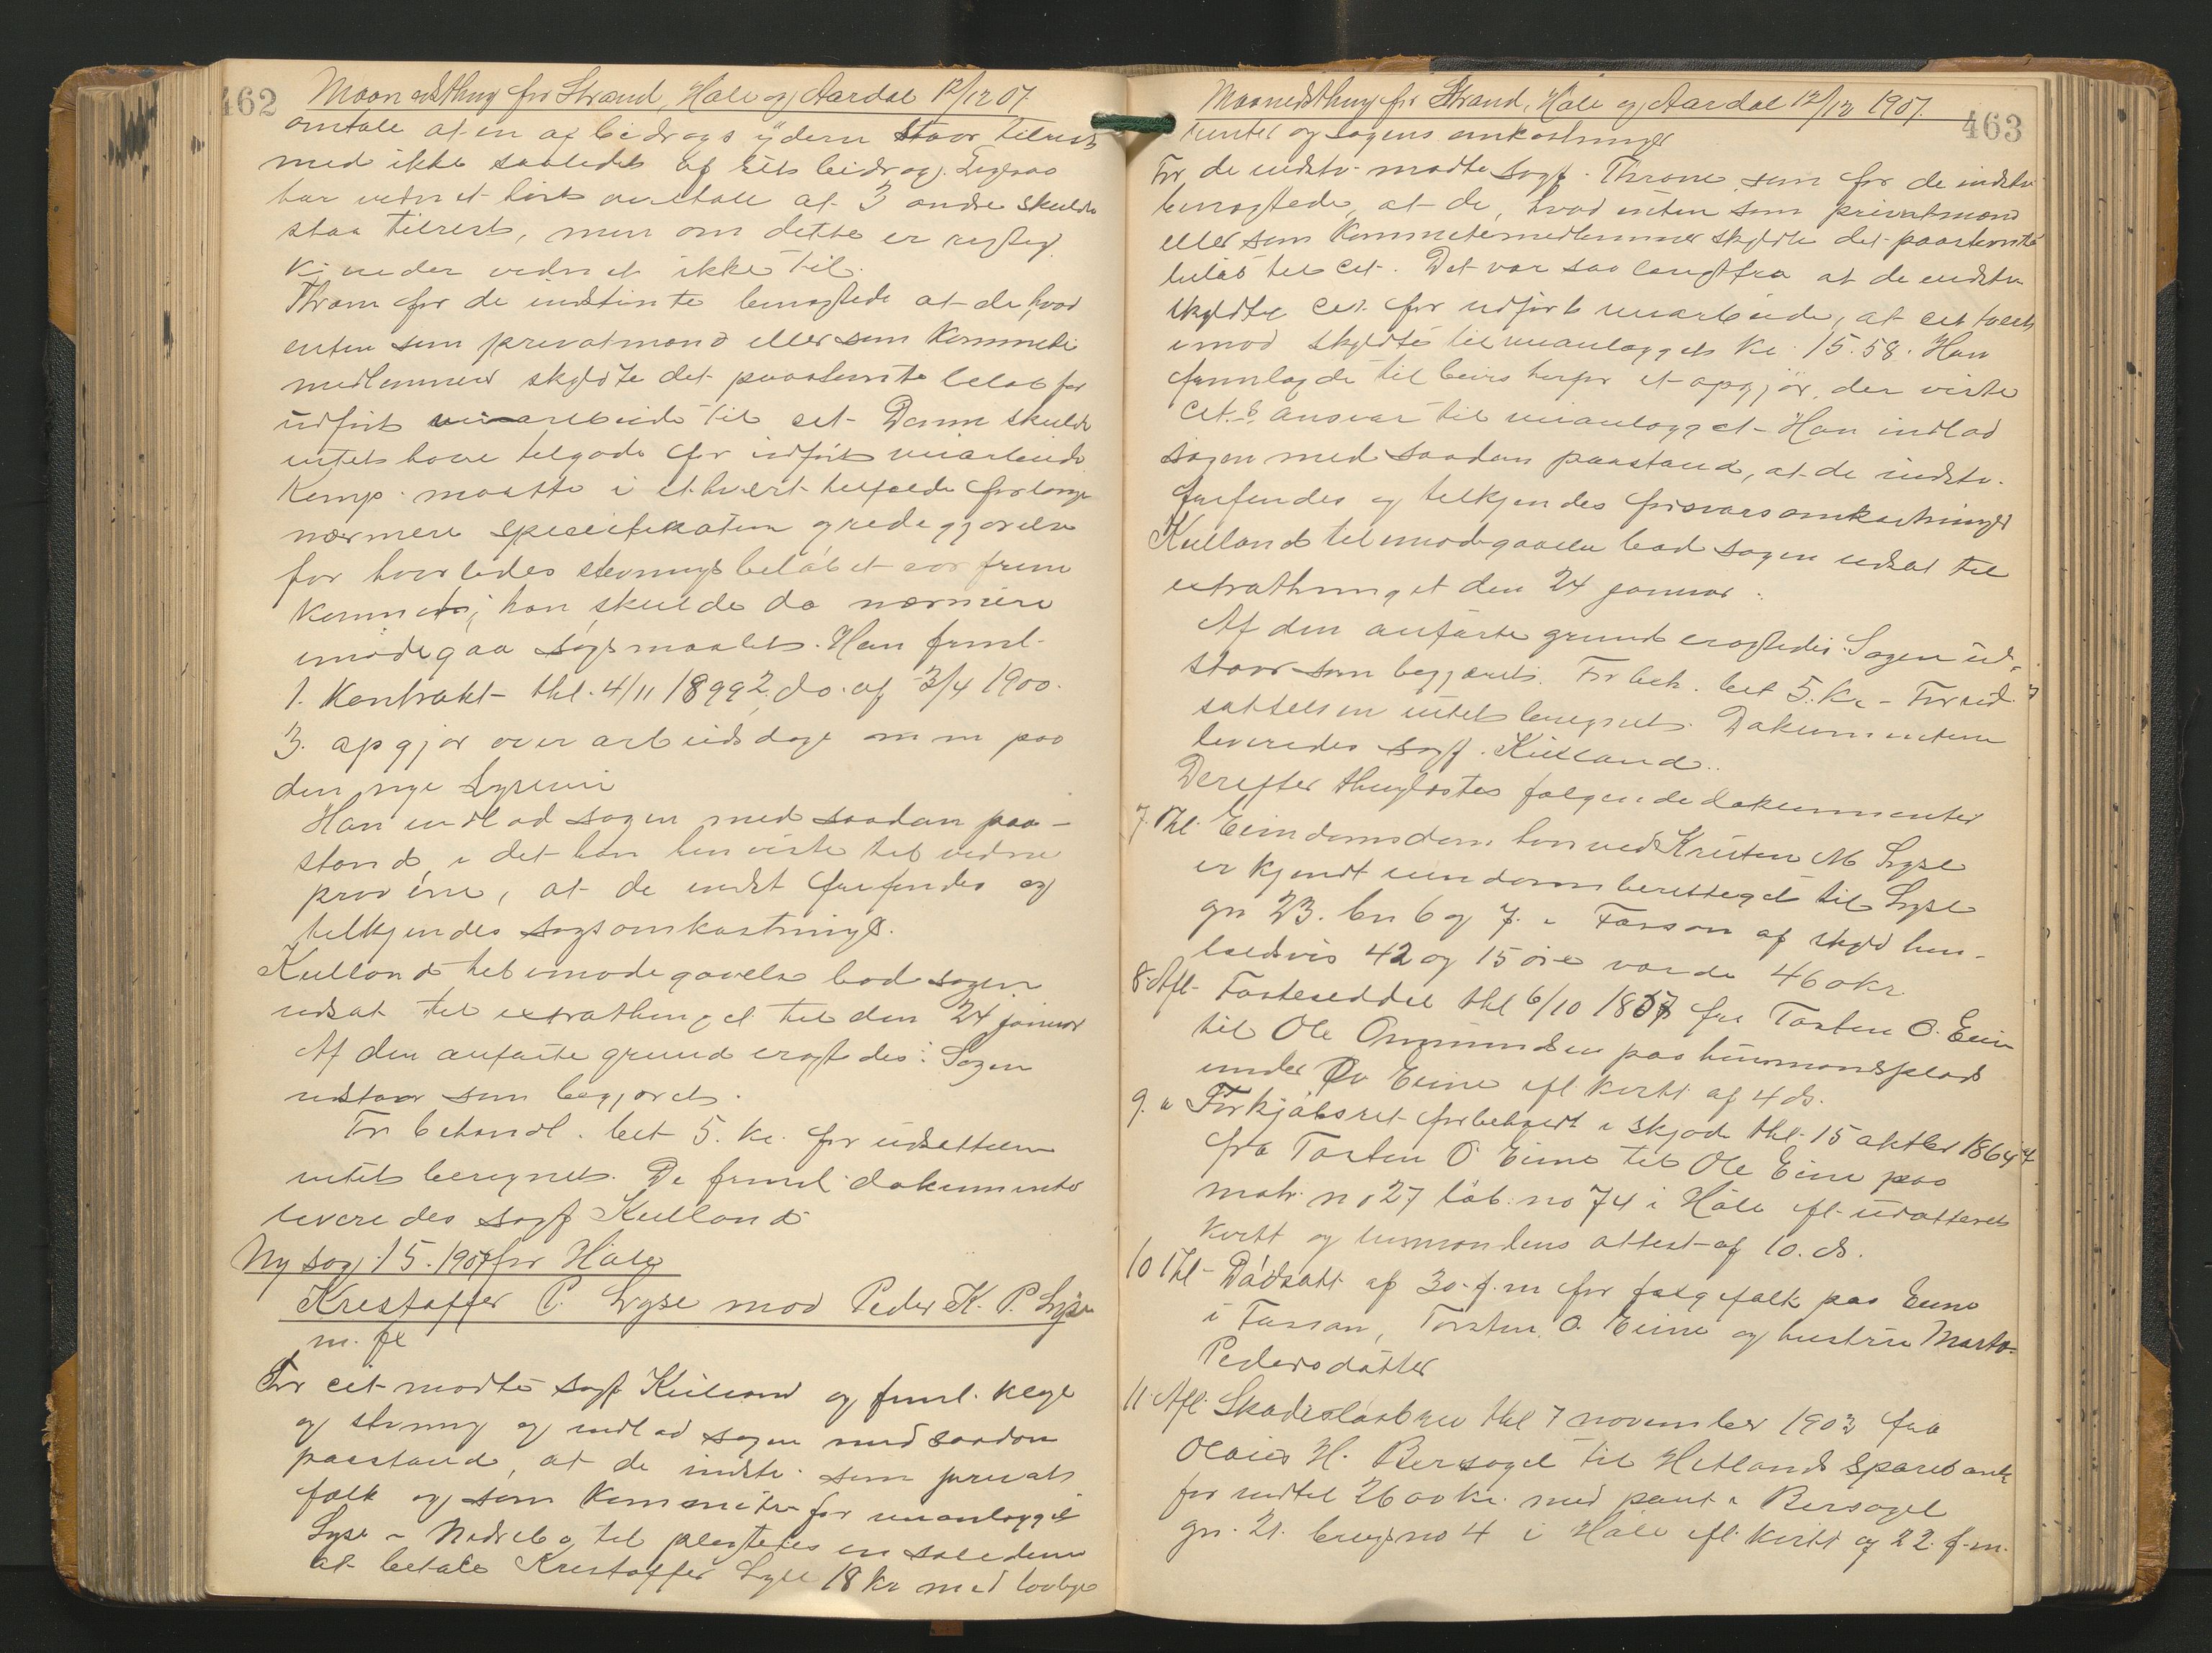 462
Maanedsthing for Strand, Høle og Aardal 12/12 07
omtale at en af bidragsyderne staar tilrest
med ikke saaledes af sits bidrag. Ligesaa
har vidnet hørt omtale at 3 andre skulde
staa tilrest, men om dette er rigtigt
kjender vidnet ikke til.
Thrane for de indstevnte benægtede at de, hvad
enten som privatmænd eller som Kommite
medlemmer skyldte det paastevnte beløb for
udført veiarbeide til cit. Denne skulde
intet have tilgode for udført veiarbeide
Komp. maatte i ethvert tilfælde forlange
nærmere specifikation og redegjørelse
for hvorledes stevningsbeløbet var frem
kommet; han skulde da nærmere
imødegaa søgsmaalet. Han freml.
1. Kontrakt thl. 4/11 1899 2, do. af 3/4 1900.
3. opgjør over arbeidsdage m m paa
den nye Lysevei
Han indlod sagen med saadan paa-
stand, i det han henviste til vidne
prov , at de indst frifindes og
tilkjendes sagsomkostninger.
Kielland til imødegaaelse bad sagen
udsat til extrathinget til den 24 januar
Af den anførte grund eragtedes: Sagen
udstaar som begjæret.
For behandl. bet 5. kr. for udsættelsen
intet beregnet. De freml. dokumenter
leveredes sagf Kielland
Ny sag 15. 1907 for Høle
Kristoffer P. Lyse mod Peder K. P. Lyse
m. fl
For cit mødte sagf Kielland og freml. klage
og stevning og indlod sagen med saadan
paastand, at de indstv. som privat
folk og som Kommite for veianlægget
Lyse - Nedrebø, tilpligtedes en
at betale Kristoffer Lyse 18 kr med lovlige
463
Maanedsthing for Strand, Høle og Aardal 12/12 1907.
renter og sagens omkostninger
For de indstv. mødte sagf. Thrane, som for de indstv
benægtede, at de, hvad enten som privatmænd
eller som Kommitemedlemmer skyldte det paastevnte
beløb til cit. Det var saa langtfra at de indstv.
skyldte cit. for udført veiarbeide, at cit tvert
imod skyldte til veianlægget kr. 15.58. Han
fremlagde til bevis herfor et opgjør, der viste
cit.s ansvar til veianlægget. Han indlod
sagen med saadan paastand, at de indstv.
frifindes og tilkjendes forsvarsomkostninger
Kielland til imødegaaelse bad sagen udsat til
extrathinget den 24 januar.
Af den anførte grund eragtedes: Sagen ud-
staar som begjæret. For beh. bet 5. Kr. - For ud-
sættelsen intet beregnet. Dokumenterne
leveredes sagf. Kielland.
Derefter thinglæstes følgende dokumenter
7. Thl. Eiendomsdom hvorved Kristen M Lyse
er kjendt eiendomsberettiget til Lyse
gn 23. bn 6 og 7. i Fossan af skyld hen-
holdsvis 42 og 15 øre værdi 460 kr.
8. Afl. Fæsteseddel thl 6/10 1857 fra Tosten O. Eiene
til Ole Ommundsen paa husmandsplads
under Øv Eiene efl. kvitt. af 4 ds.
9. " Forkjøbsret forbeholdt i skjøde thl. 15 oktbr 1864
fra Tosten O Eiene til Ole Eiene paa
matr. no 27 løb. no 74 i Høle efl. udstedt
kvitt og lensmandens attest af 10. ds.
10 Thl. Dødsatt af 30. f. m for følgefolk paa Eiene
i Fossan, Torsten O. Eiene og hustru Marta
Pedersdatter
11. Afl. Skadesløsbrev thl 7 november 1903 fra
Olaus H. Bersagel til Hetlands Sparebank
for indtil 2600 kr. med pant i Bersagel
gn. 21. brugsno 4 i Høle efl. kvitt af 22. f.m.